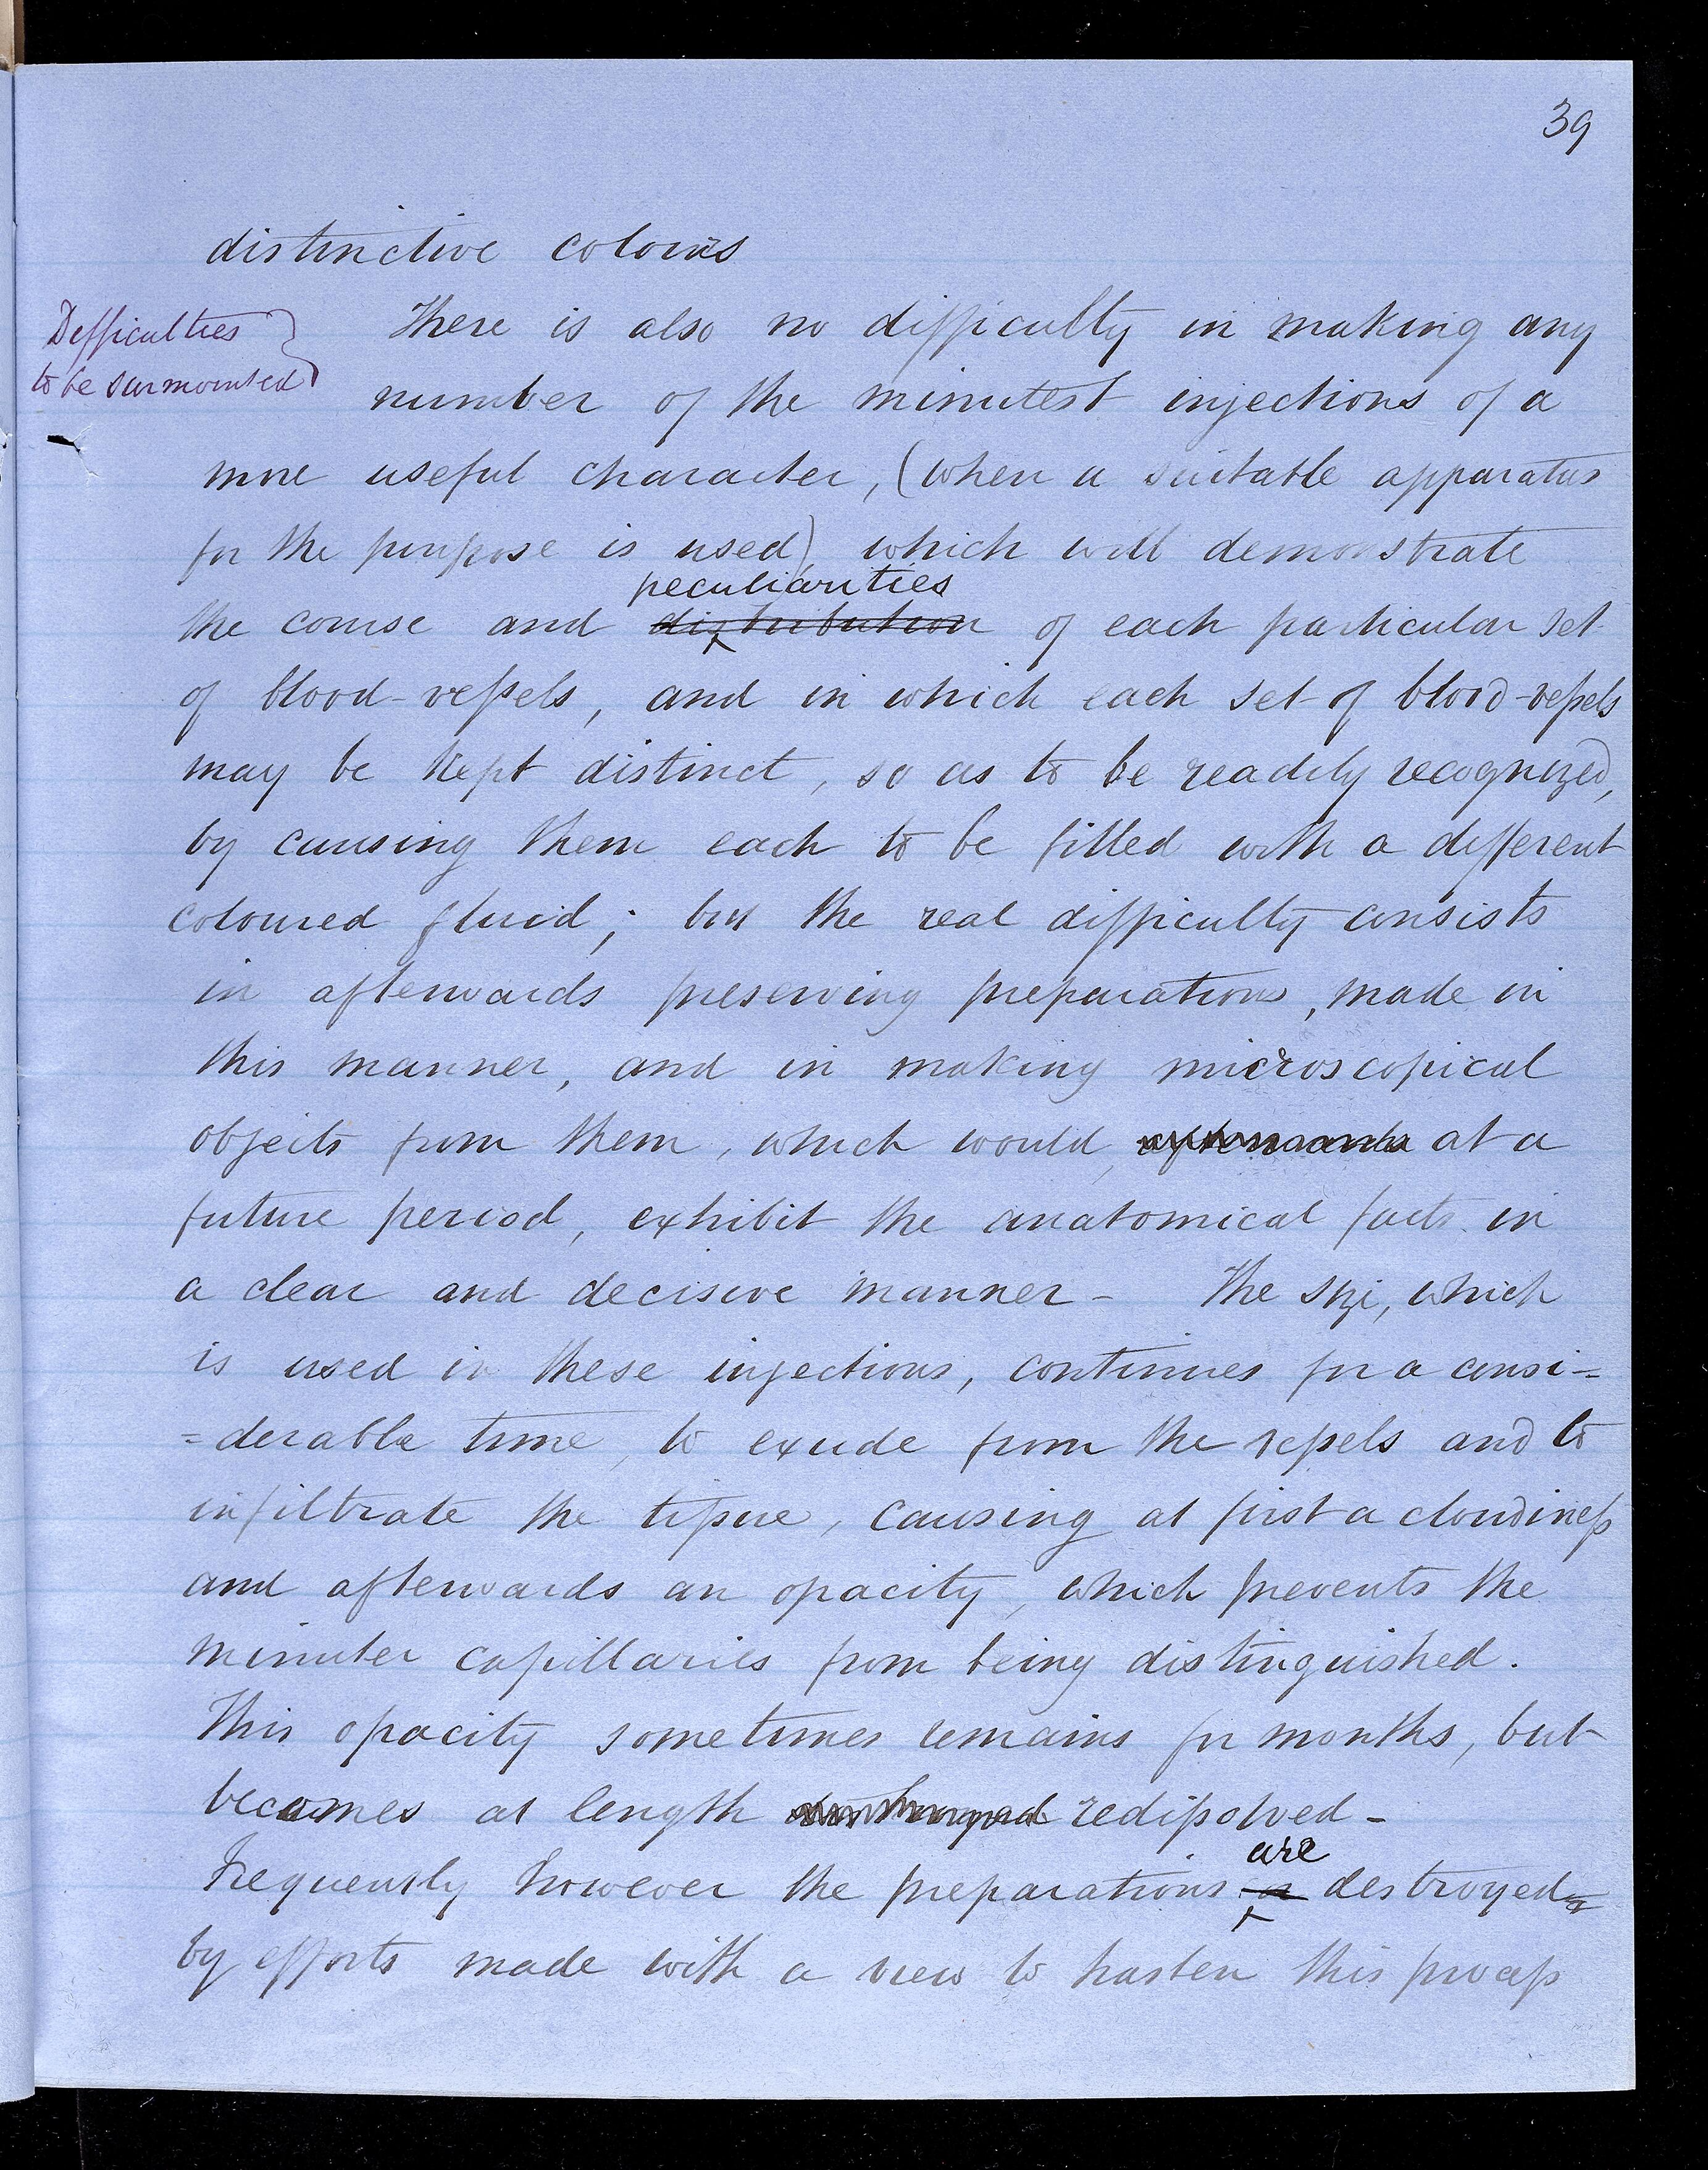 39
distinctive colours
Difficulties
to be surmounted
There is also no difficulty in making any
number of the minutest injections of a
more useful character, (when a suitable apparatus
for the purpose is used) which will demonstrate
peculiarities
the course and distribution of each particular set
of blood-vessels, and in which each set of blood-vessels
may be kept distinct, so as to be readily recognized,
by causing them each to be filled with a different
coloured fluid; but the real difficulty consists
in afterwards preserving preparations, made in
this manner, and in making microscopical
objects from them, which would, afterwards at a
future period, exhibit the anatomical facts in
a clear and decisive manner - The size, which
is used in these injections, continues for a consi=
=derable time, to exude from the vessels and to
infiltrate the tissue, causing at first a cloudiness
and afterwards an opacity, which prevents the
minuter capillaries from being distinguished.
This opacity sometimes remains for months, but
becomes at length redissolved -
are
Frequently however the preparations destroyed
by efforts made with a view to hasten this process